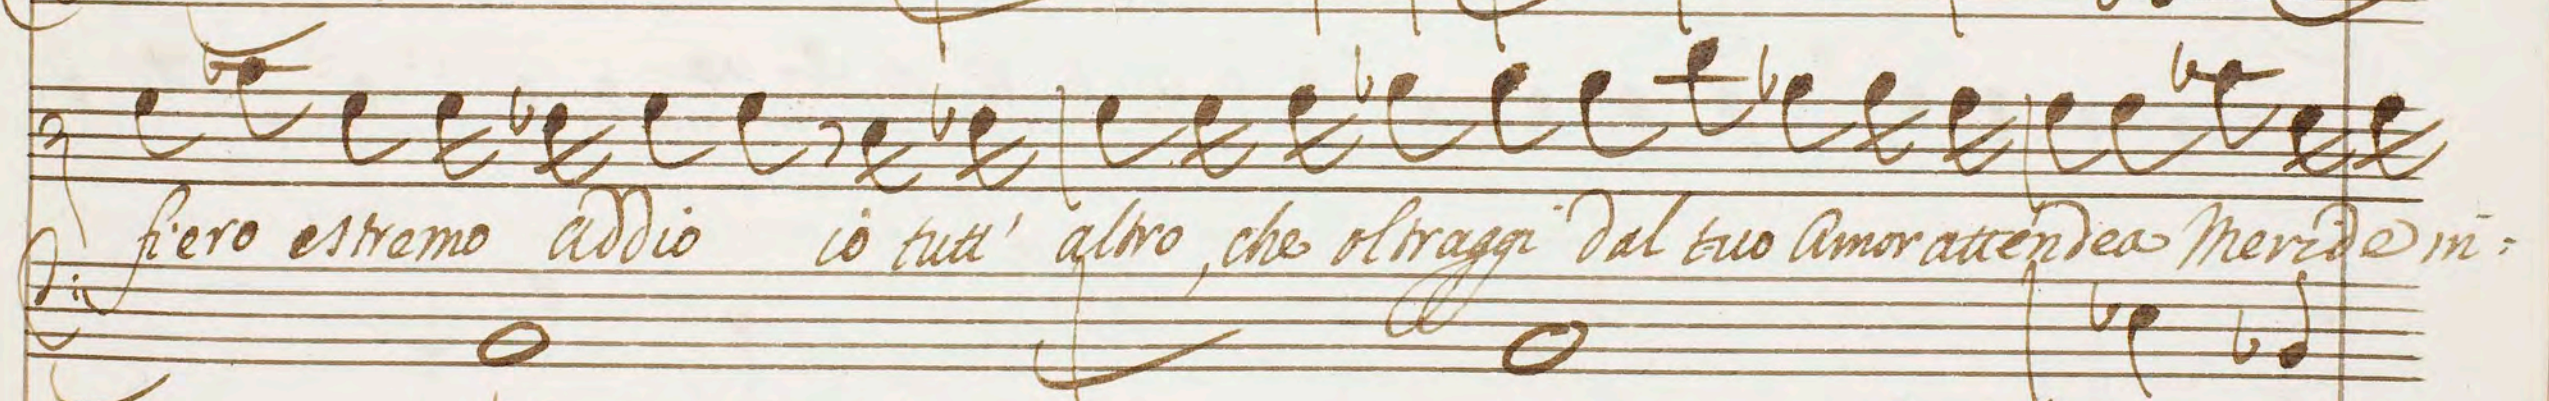 fiero estremo addio io tutt' altro, che oltraggi dal tuo Amor attendea Meride in=